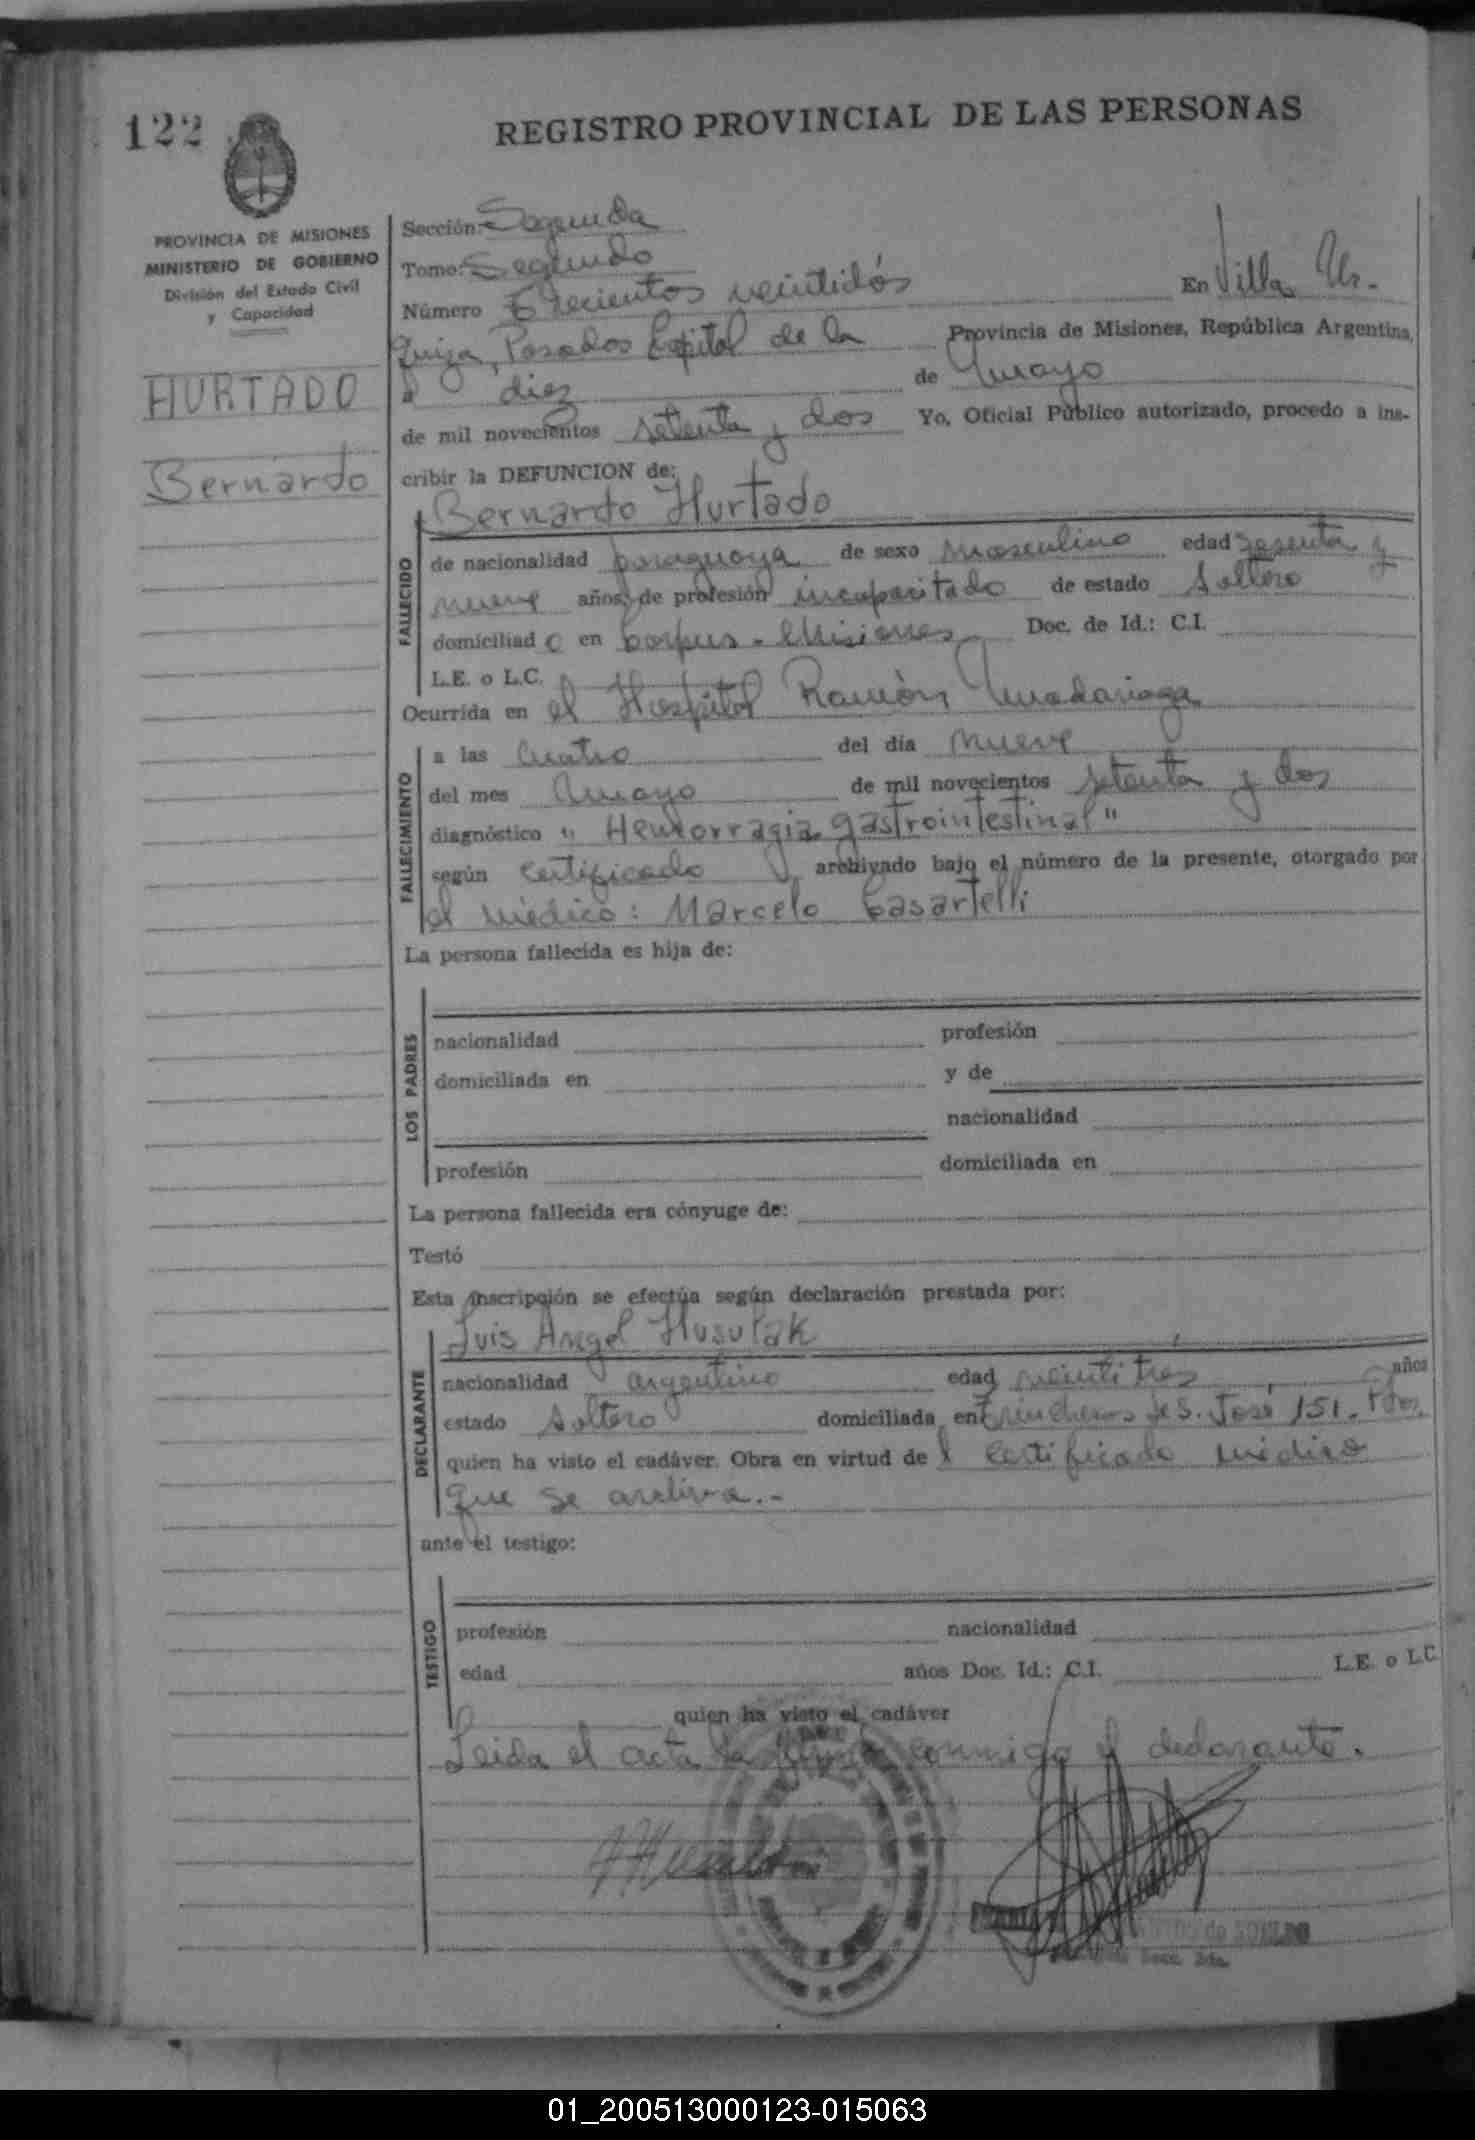 122
REGISTRO PROVINCIAL DE LAS PERSONAS
PROVINCIA DE MISIONES
MINISTERIO DE GOBIERNO
División del Estado Civil
y Capacidad
HURTADO
Bernardo
Sección: Segunda
Tomo: Segundo
Número Trecientos veintidós En Villa Ur-
quiza, Posadas Capital de la Provincia de Misiones, República Argentina,
a diez de Mayo
de mil novecientos setenta y dos Yo, Oficial Público autorizado, procedo a ins-
cribir la DEFUNCION de:
Bernardo Hurtado
FALLECIDO
de nacionalidad paraguaya de sexo masculino edad sesenta y
nueve años, de profesión incapacitado de estado soltero
domiciliad o en Corpus - Misiones Doc. de Id.: C.I.
L.E. o L.C.
Ocurrida en el Hospital Ramón Madariaga
FALLECIMIENTO
a las cuatro del día nueve
del mes Mayo de mil novecientos setenta y dos
diagnóstico "Hemorragia gastrointestinal"
según certificado archivado bajo el número de la presente, otorgado por
el médico: Marcelo Casartelli
La persona fallecida es hija de:
LOS PADRES
nacionalidad profesión
domiciliada en y de
nacionalidad
profesión domiciliada en
La persona fallecida era cónyuge de:
Testó
Esta inscripción se efectúa según declaración prestada por:
Luis Angel Husulak
DECLARANTE
nacionalidad argentino edad veintitrés años
estado soltero domiciliada en Trincheras de S. José 151. Pdas.
quien ha visto el cadáver. Obra en virtud de l certificado médico
que se archiva.-
ante el testigo:
TESTIGO
profesión nacionalidad
edad años Doc. Id.: C.I. L.E. o L.C.
quien ha visto el cadáver
Leida el acta la firma conmigo el declarante.
01_200513000123-015063